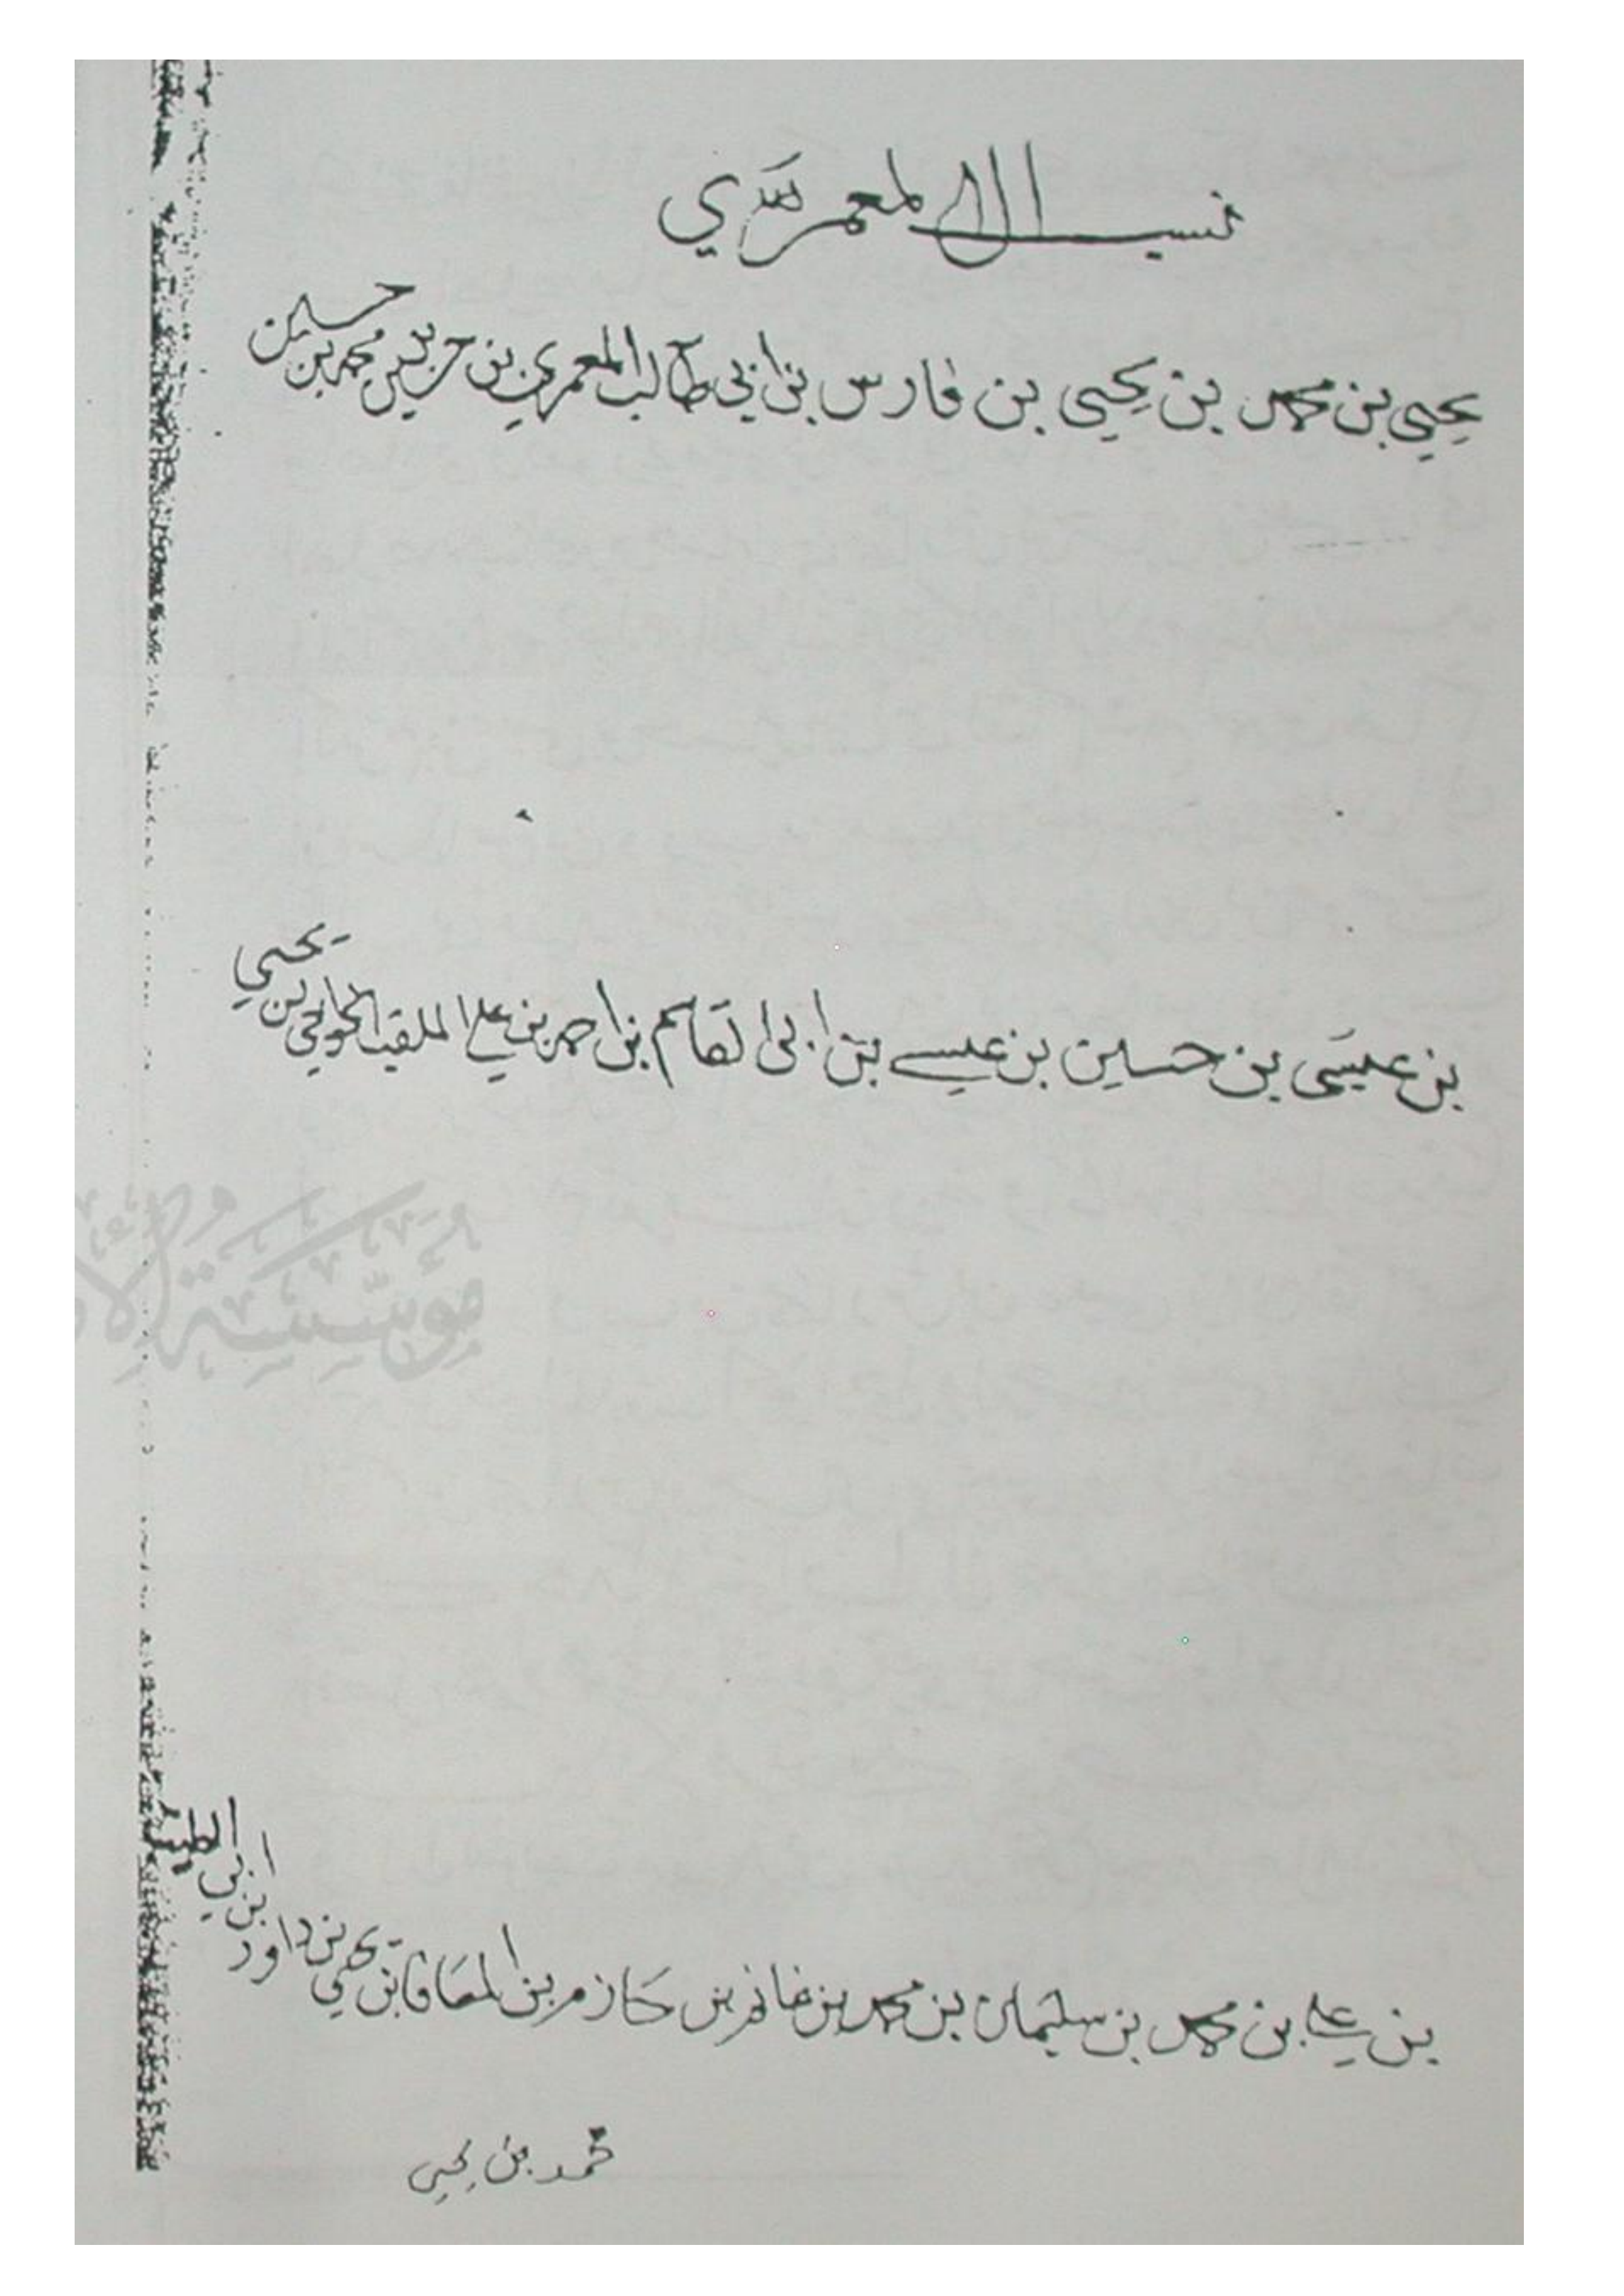 نسب ال المعمري
يحيى بن محمد بن يحيى بن فارس بن ابي طالب المعمري بن محمد بن حسين
بن عيسى بن حسين بن عيسى بن ابي القاسم بن احمد بن علي الملقب بن يحيى
بن علي بن محمد بن سليمان بن محمد بن غانم بن حازم بن المعافا بن يحيى بن داود بن ابي الطيب
محمد بن يحيى
مؤسسة